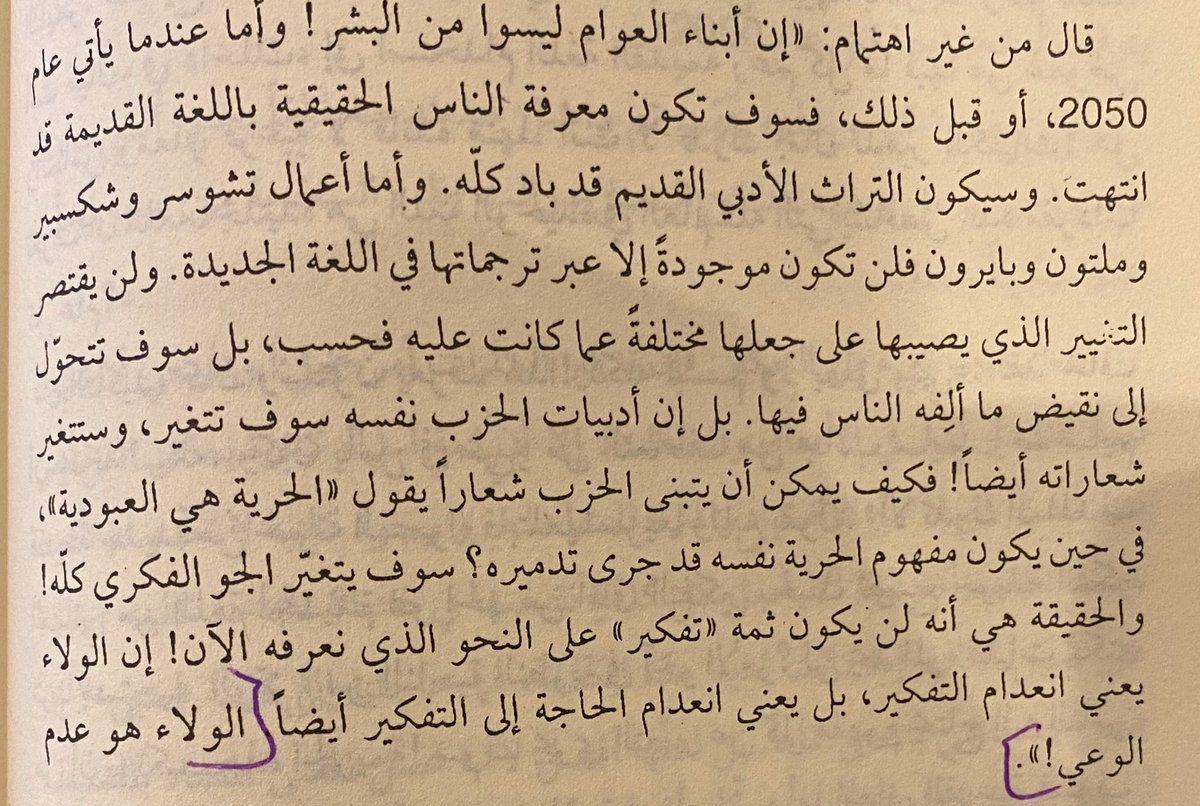 قال من غير اهتمام: «إن أبناء العوام ليسوا من البشر! وأما عندما يأتي عام
2050، أو قبل ذلك، فسوف تكون معرفة الناس الحقيقية باللغة القديمة قد
انتهت. وسيكون التراث الأدبي القديم قد باد كلّه. وأما أعمال تشوسر وشكسبير
وملتون وبايرون فلن تكون موجودةً إلا عبر ترجماتها في اللغة الجديدة. ولن يقتصر
التغيير الذي يصيبها على جعلها مختلفةً عما كانت عليه فحسب، بل سوف تتحوّل
إلى نقيض ما ألِفه الناس فيها. بل إن أدبيات الحزب نفسه سوف تتغير، وستتغير
شعاراته أيضاً! فكيف يمكن أن يتبنى الحزب شعاراً يقول «الحرية هي العبودية»،
في حين يكون مفهوم الحرية نفسه قد جرى تدميره؟ سوف يتغيّر الجو الفكري كلّه!
والحقيقة هي أنه لن يكون ثمة «تفكير» على النحو الذي نعرفه الآن! إن الولاء
يعني انعدام التفكير، بل يعني انعدام الحاجة إلى التفكير أيضاً الولاء هو عدم
الوعي!».